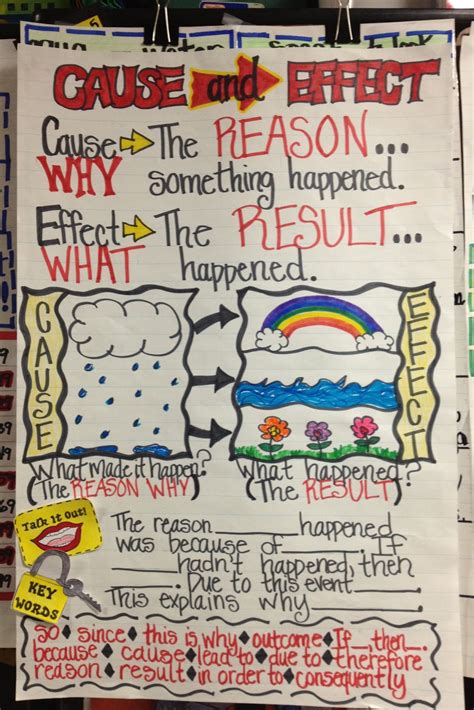 CAUSE and EFFECT
Cause The REASON...
WHY something happened.
Effect The RESULT...
WHAT happened.
CAUSE
EFFECT
What made it happen?
(The REASON WHY)
What happened?
(The RESULT)
Talk it Out!
KEY
WORDS
The reason ______ happened
was because of ______. If
______ hadn't happened, then
______. Due to this event ____.
This explains why ______.
so ◆ since ◆ this is why ◆ outcome ◆ If__, then__.
because ◆ cause ◆ lead to ◆ due to ◆ therefore
reason ◆ result ◆ in order to ◆ consequently